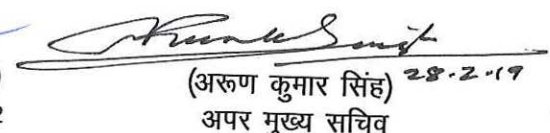 (अरूण कुमार सिंह) 28.2.19
अपर मुख्य सचिव